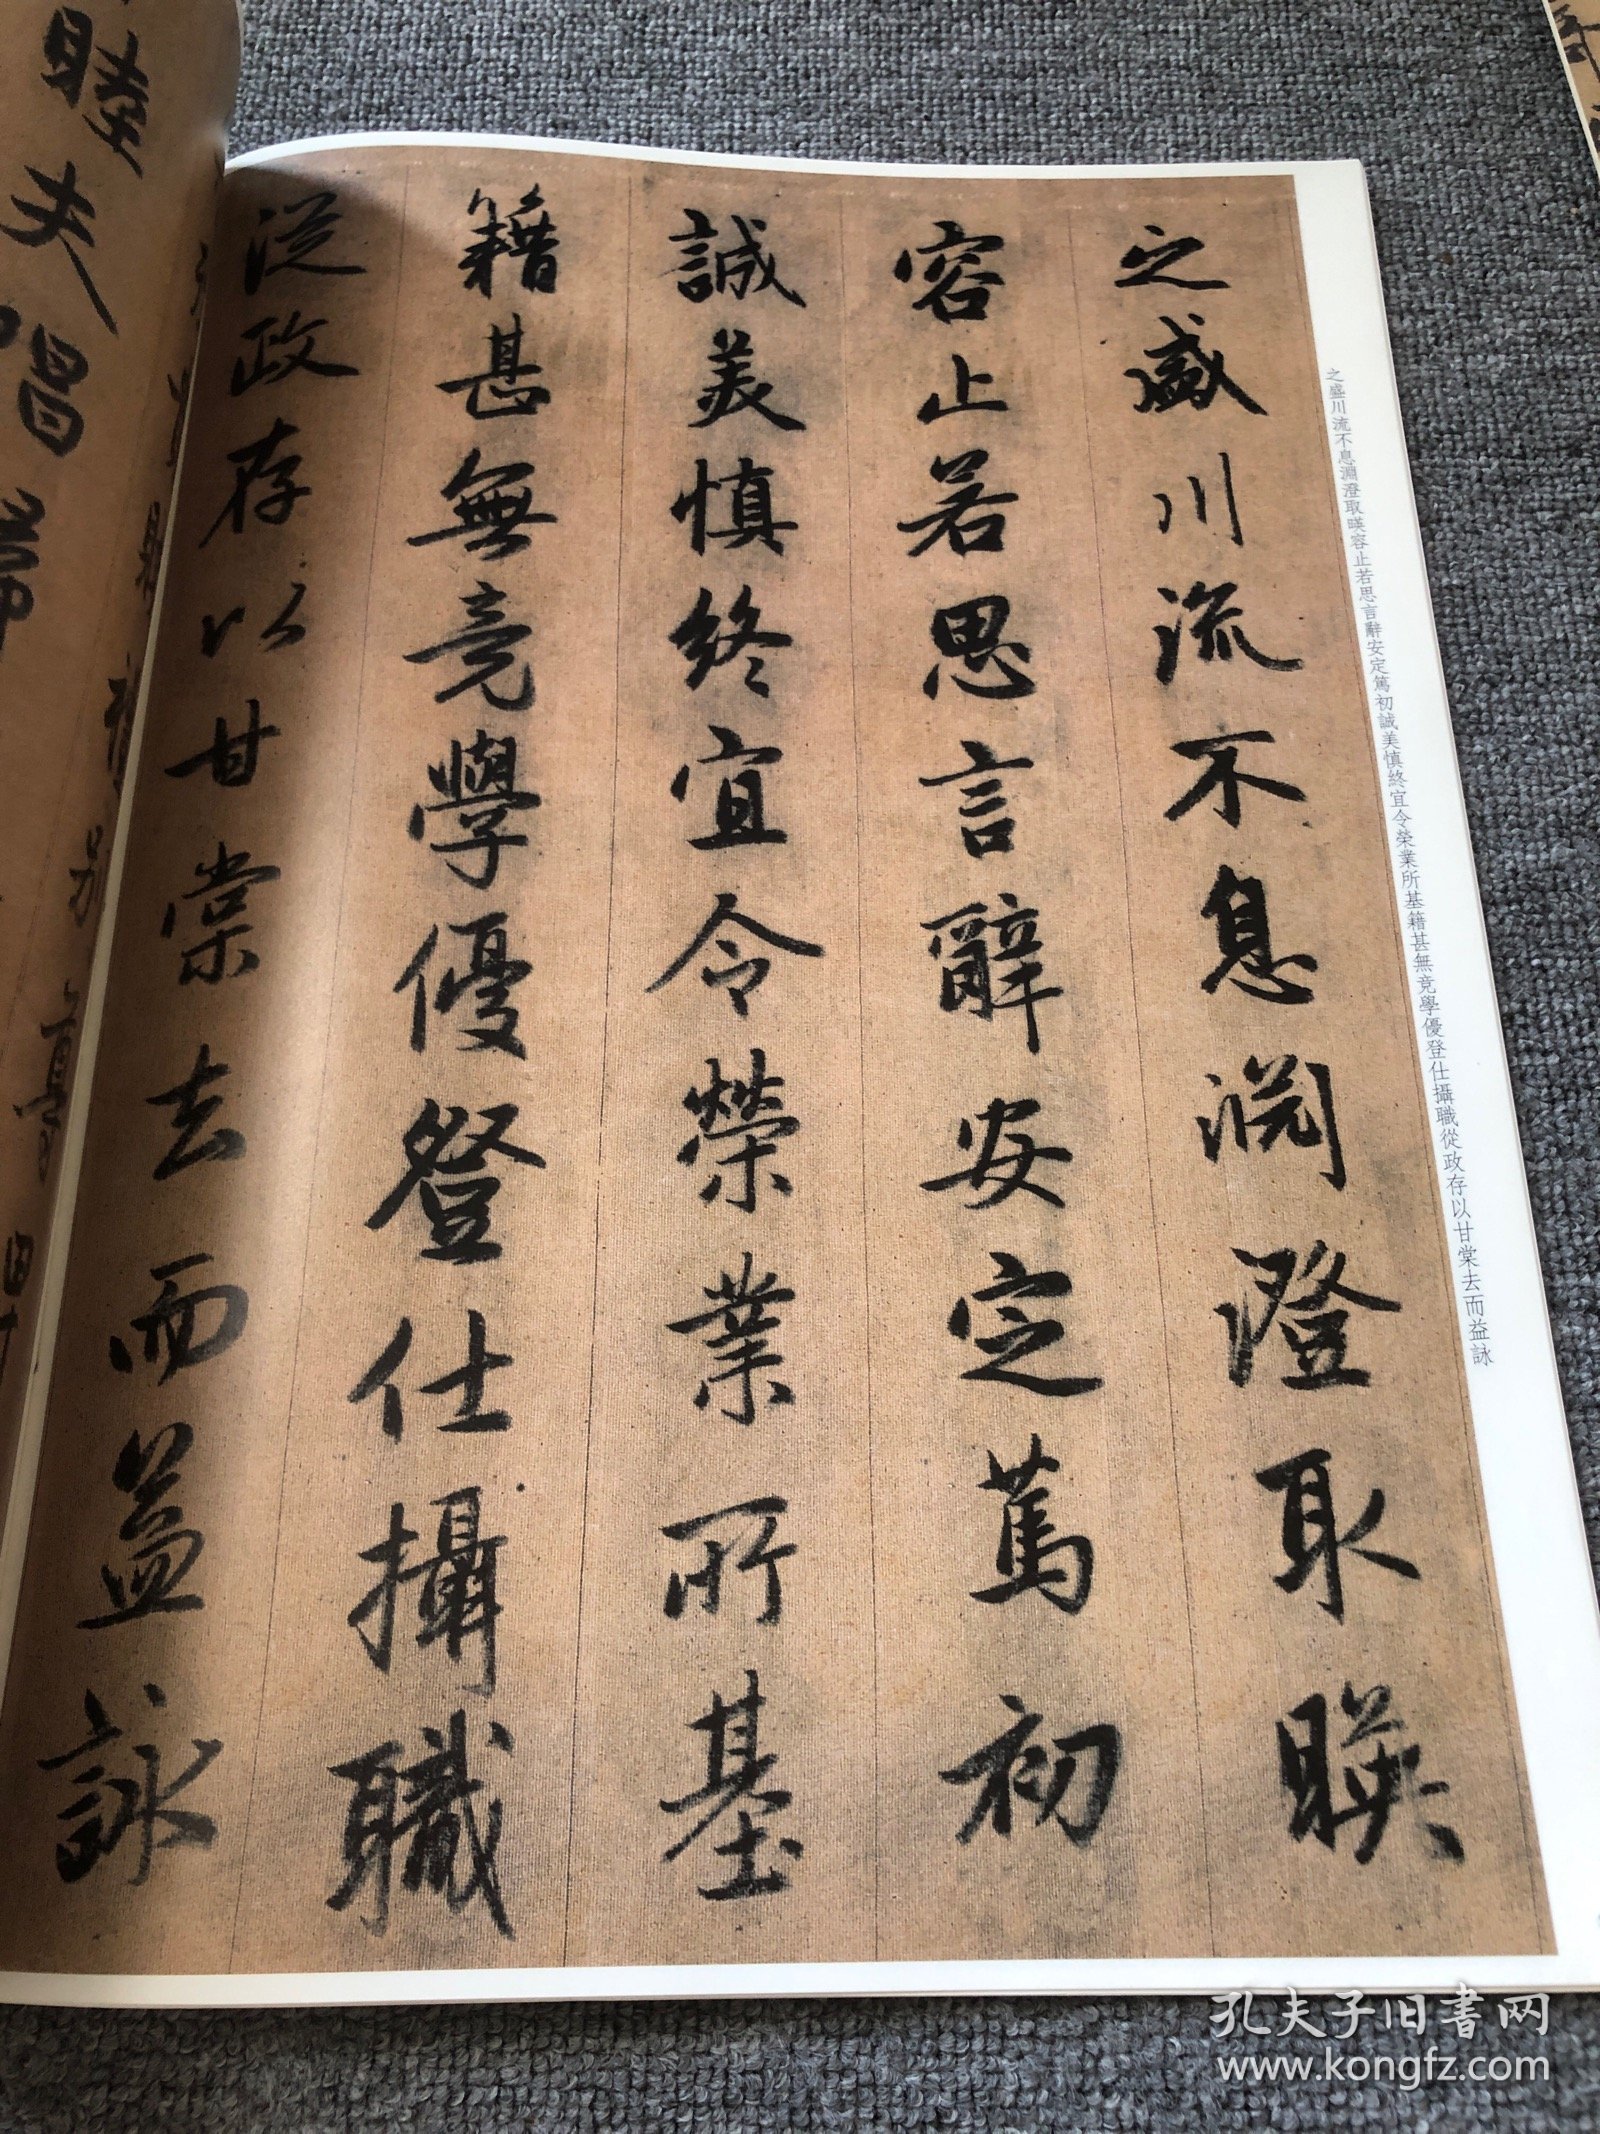 之盛川流不息淵澄取暎
容止若思言辭安定篤初
誠美慎終宜令榮業所基
籍甚無竞學優登仕攝職
從政存以甘棠去而益詠
之盛川流不息淵澄取暎容止若思言辭安定篤初誠美慎終宜令榮業所基籍甚無竞學優登仕攝職從政存以甘棠去而益詠
睦夫唱婦
孔夫子旧书网
www.kongfz.com